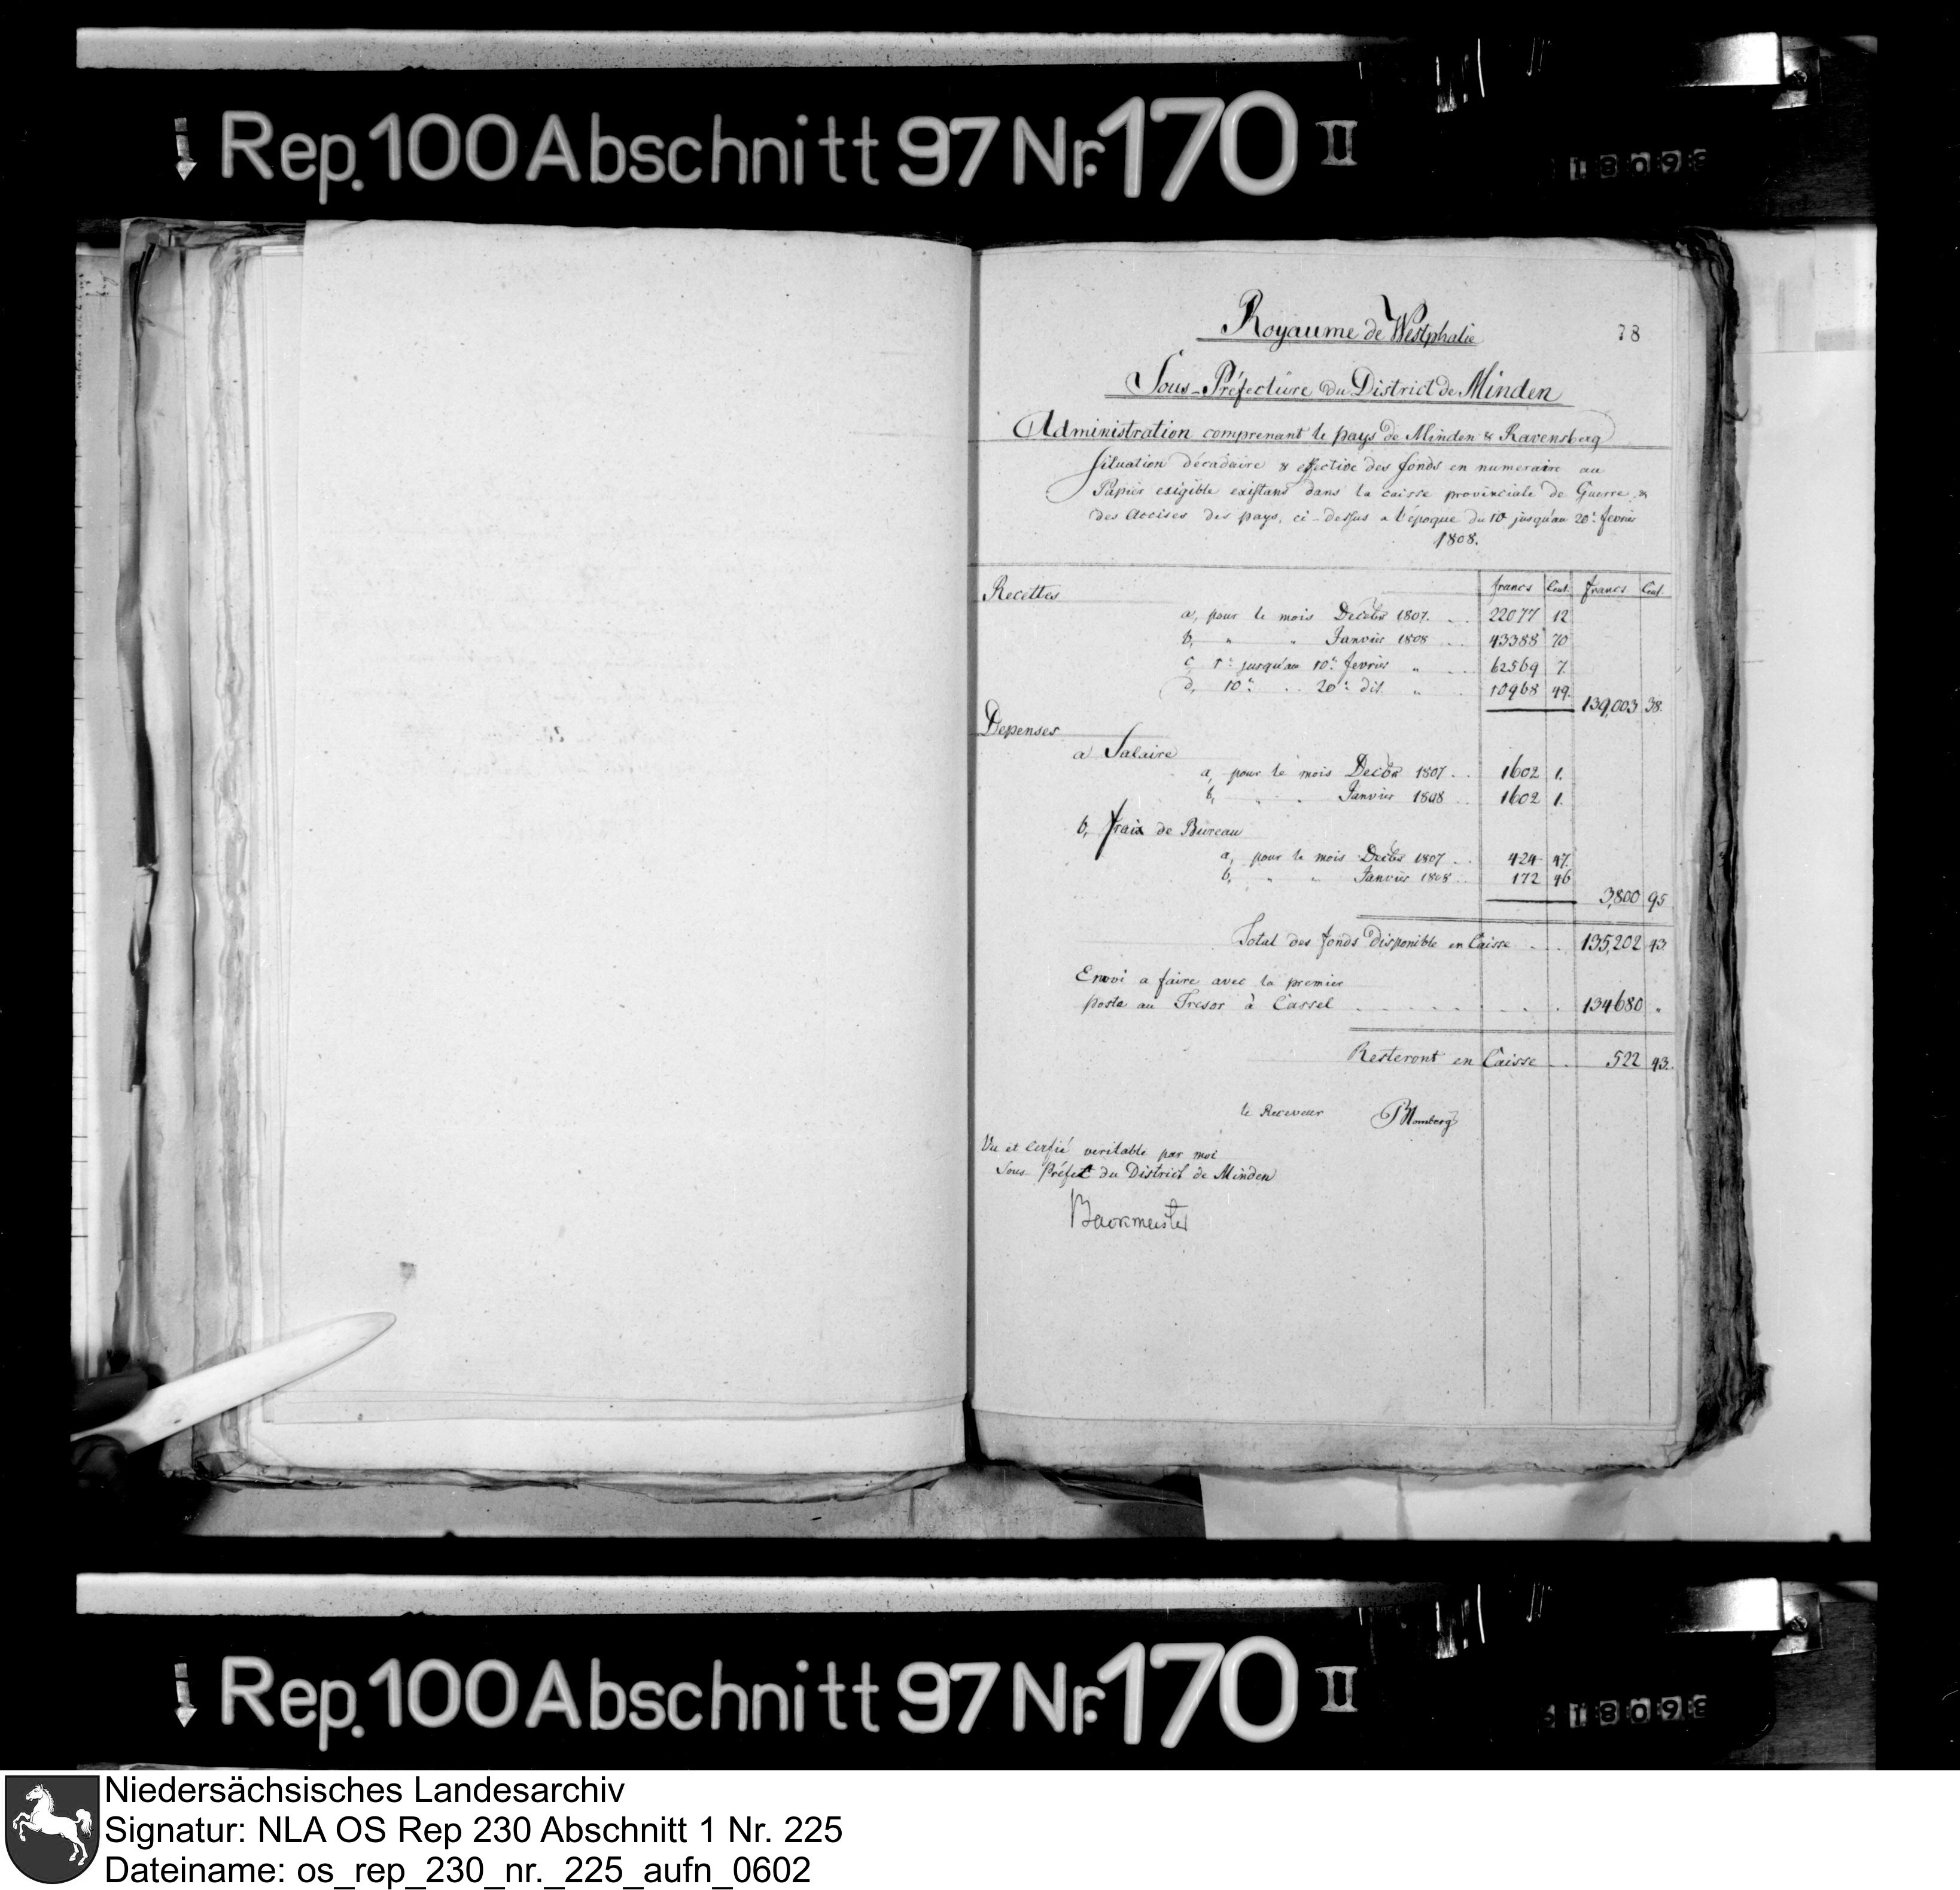 Rep. 100 Abschnitt 97 Nr. 170 II
18098
Royaume de Westphalie
78
Sous-Préfecture du District de Minden
Administration comprenant le pays de Minden & Ravensberg
Situation décadaire & effective des fonds en numeraire au
Papier exigible existans dans la caisse provinciale de Guerre &
des Accises des pays, ci-dessus a l'époque du 10 jusqu'au 20e fevrier
1808.
Recettes francs Cent. francs Cent.
a, pour le mois Decebr 1807. .. 22077 12
b, " " Janvier 1808 ... 43388 70
c 1r jusqu'au 10e fevrier " .. 62569 7
d, 10e .. 20e dit " . 10968 49.
139,003 38.
Depenses
a Salaire
a, pour le mois Decbr 1807 .. 1602 1.
b, " " Janvier 1808 .. 1602 1.
b, fraix de Bureau
a, pour le mois Decbr 1807 .. 424 47.
b, " " Janvier 1808 .. 172 46
3,800 95
Total des fonds disponible en Caisse ... 135,202 43.
Envoi a faire avec la premier
poste au Tresor à Cassel . . . . . . . . 134680 "
Resteront en Caisse ... 522 43.
le Receveur
Vu et Certié veritable par moi
Sous-Préfet du District de Minden
Backmeister
Rep. 100 Abschnitt 97 Nr. 170 II
18098
Niedersächsisches Landesarchiv
Signatur: NLA OS Rep 230 Abschnitt 1 Nr. 225
Dateiname: os_rep_230_nr._225_aufn_0602